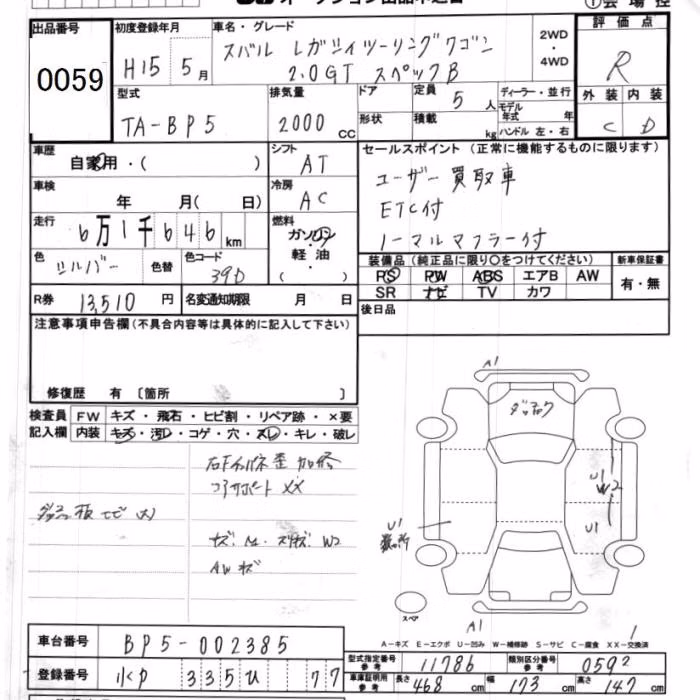 出品番号
0059
初度登録年月
H15 5月
車名・グレード
スバル レガシィツーリングワゴン
2.0GT スペックB
2WD
・
4WD
評価点
R
外装 内装
C D
型式
TA-BP5
排気量
2000 cc
ドア
形状
定員 5人
積載 kg
ディーラー・並行
モデル年式 年
ハンドル 左・右
車歴
自家用・( )
シフト
AT
車検
年 月( 日)
冷房
AC
走行
6万1千646km
燃料
ガソリン
軽油
( )
色
シルバー
色替
色コード
39D
R券 13,510 円
名変通知期限 月 日
セールスポイント (正常に機能するものに限ります)
ユーザー買取車
ETC付
ノーマルマフラー付
装備品 (純正品に限り○をつけてください)
PS PW ABS エアB AW
SR ナビ TV カワ
新車保証書
有・無
後日品
注意事項申告欄(不具合内容等は具体的に記入して下さい)
修復歴 有 〔箇所 〕
検査員
記入欄
FW キズ・飛石・ヒビ割・リペア跡・×要
内装 キズ・汚レ・コゲ・穴・スレ・キレ・破レ
コアサポート XX
W2
AWキズ
A1
U1
W2
U1
U1
スペア
A1
A-キズ E-エクボ U-凹み W-補修跡 S-サビ C-腐食 XX-交換済
車台番号 BP5-002385
登録番号 335 ひ 77
型式指定番号 参考 11786
類別区分番号 参考 0592
車庫証明用 参考 長さ 468 cm 幅 173 cm 高さ 147 cm